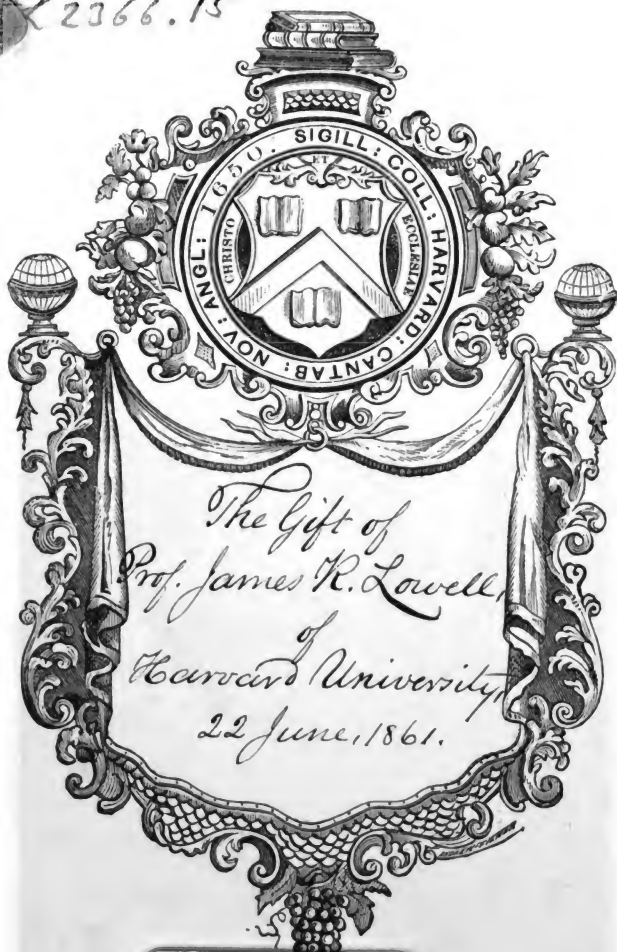 2366.15
1650. SIGILL: COLL: HARVARD: CANTAB: NOV: ANGL:
CHRISTO
ET
ECCLESIAE
The Gift of
Prof. James R. Lowell,
of
Harvard University,
22 June, 1861.